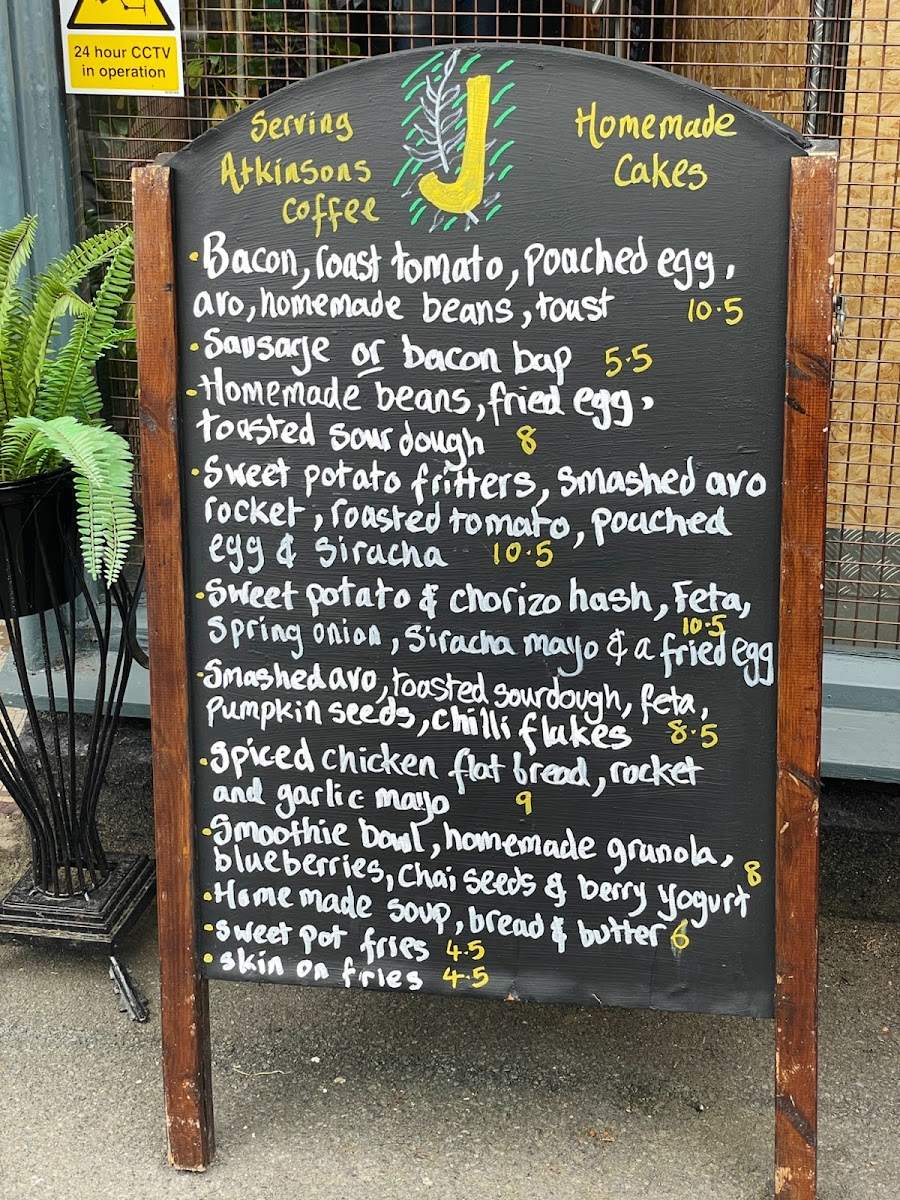 24 hour CCTV
in operation
Serving
Atkinsons
Coffee
J
Homemade
Cakes
• Bacon, roast tomato, poached egg,
avo, homemade beans, toast 10.5
• Sausage or bacon bap 5.5
• Homemade beans, fried egg,
toasted sourdough 8
• Sweet potato fritters, smashed avo
rocket, roasted tomato, poached
egg & siracha 10.5
• Sweet potato & chorizo hash, Feta,
10.5
Spring onion, siracha mayo & a fried egg
• Smashed avo, toasted sourdough, feta,
pumpkin seeds, chilli flakes 8.5
• Spiced chicken flat bread, rocket
and garlic mayo 9
• Smoothie bowl, homemade granola,
blueberries, chai seeds & berry yogurt 8
• Home made soup, bread & butter 6
• sweet pot fries 4.5
• skin on fries 4.5